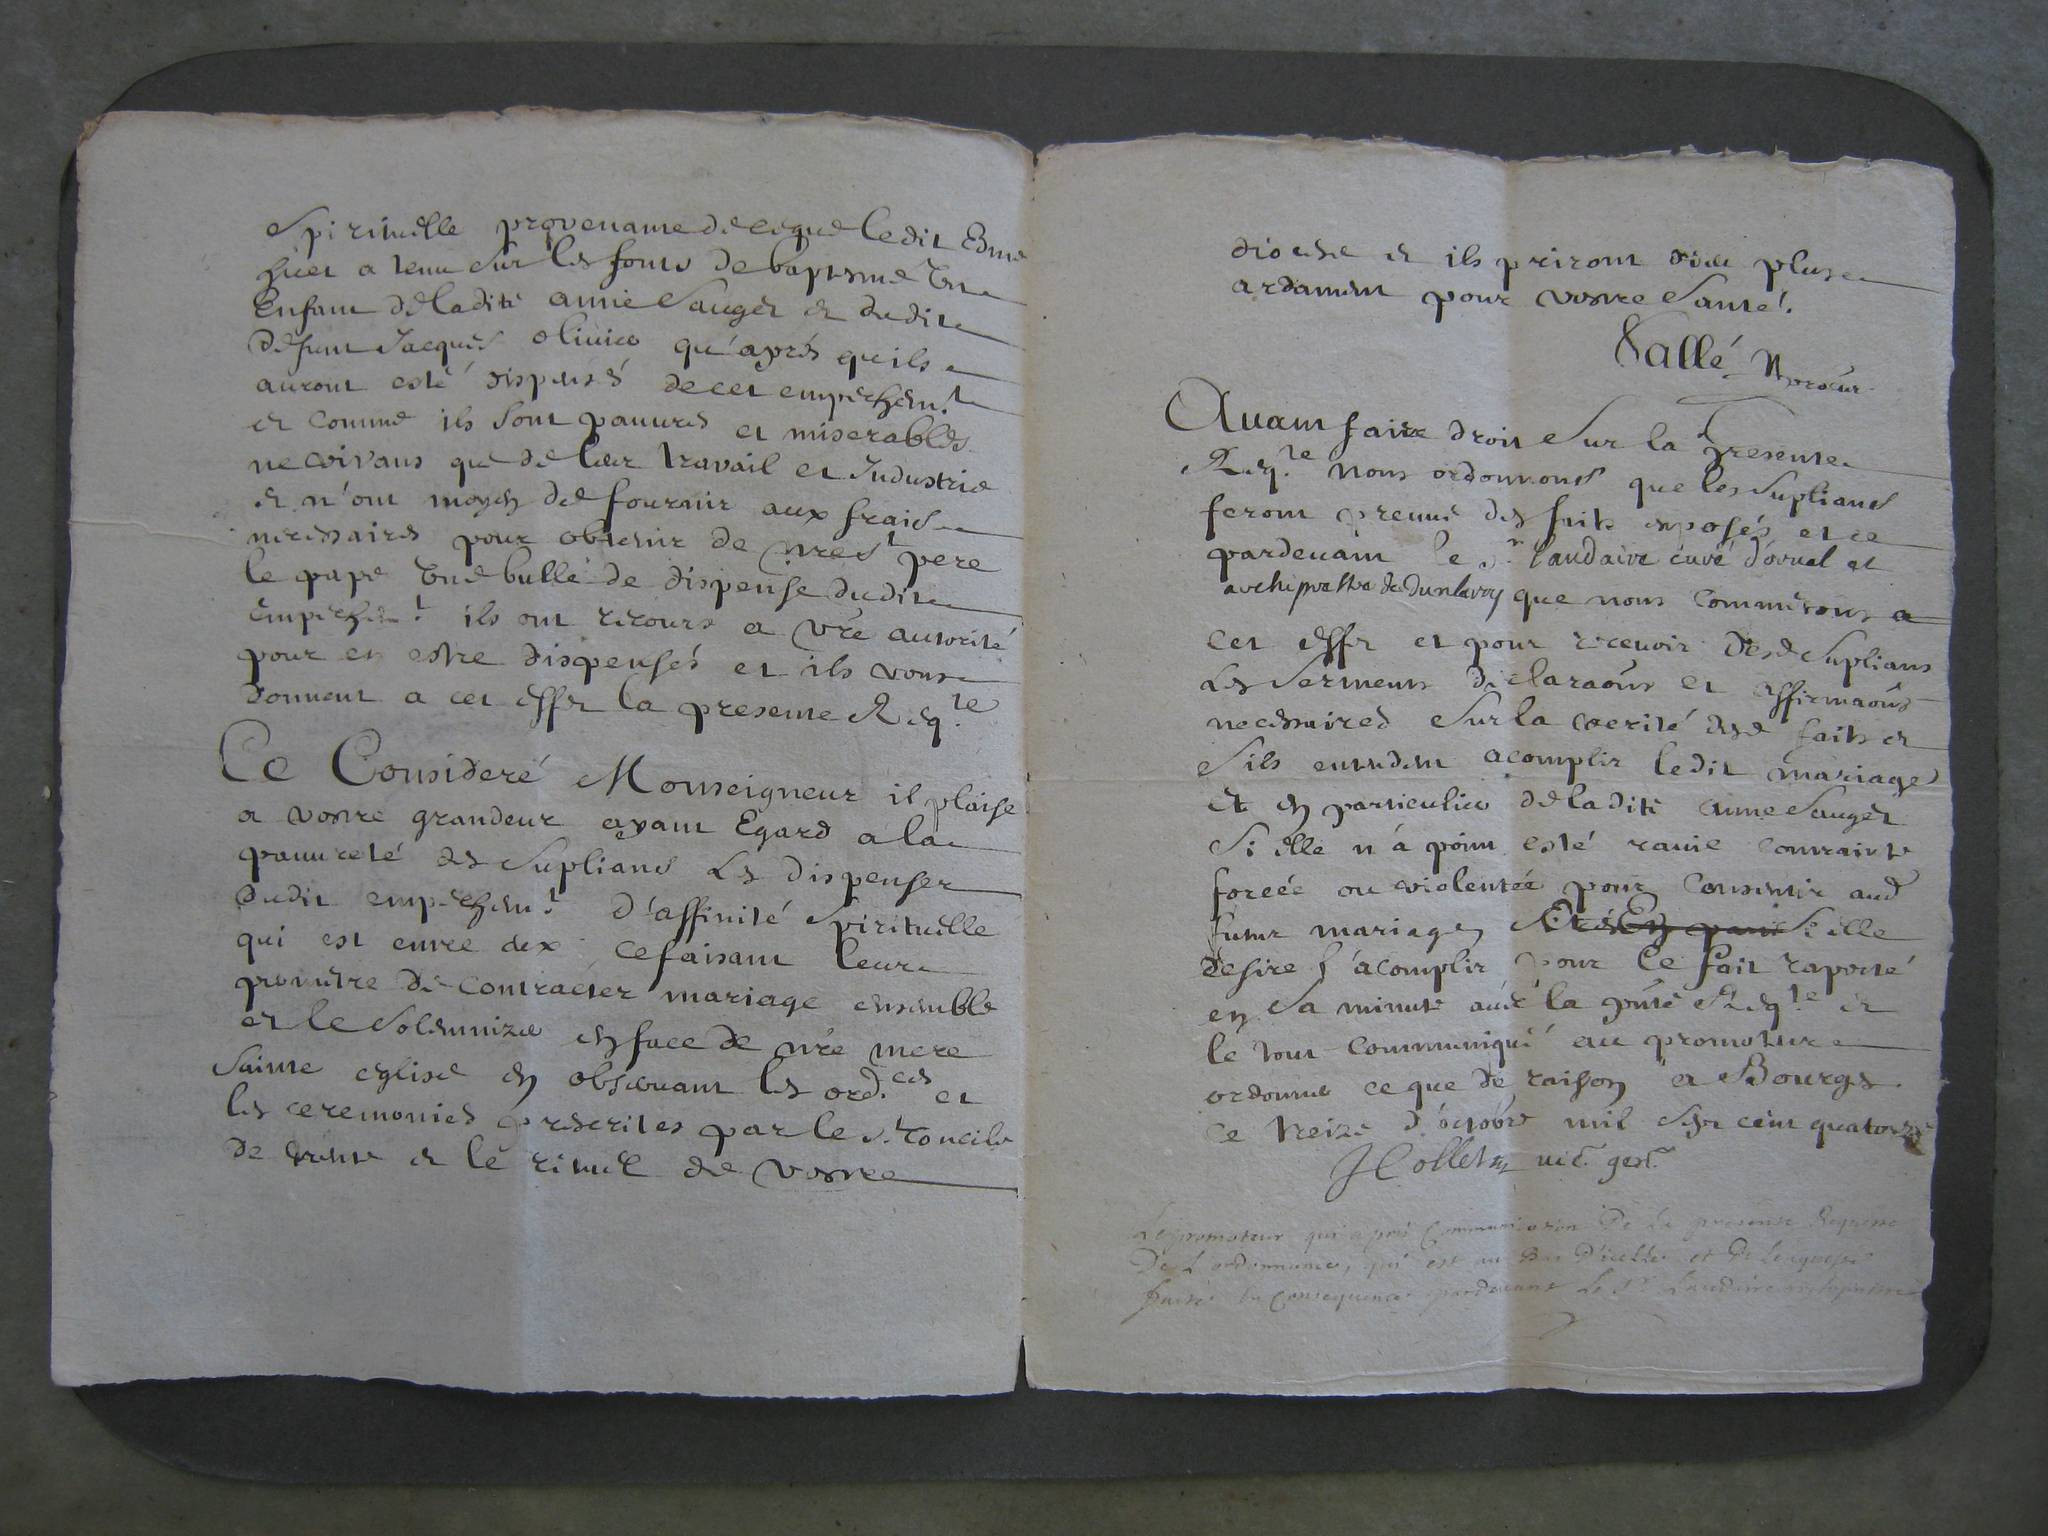 Spirituelle provenante de ce que ledit Edmé
huet a tenu sur les fonts de baptesme Un
Enfant de ladite anne Sauget et dudit
defunt Jacques olivier qu'aprés qu'ils
auront esté dispensés de cet empeschem.t
et comme ils sont pauvres et miserables
ne vivans que de leur travail et Industrie
et n'ont moyen de fournir aux frais
necessaires pour obtenir de nre st pere
le pape Une bulle de dispense dudit
empeschem.t ils ont recours a vre autorité
pour en estre dispensés et ils vous
donnent a cet effet la presente Req.te
Ce Consideré Monseigneur il plaise
a vostre grandeur ayant Egard a la
pauvreté des Suplians les dispenser
dudit empeschem.t d'affinité Spirituelle
qui est entre eux ce faisant leur
permettre de contracter mariage ensemble
et le Solemnizer en face de nre mere
Sainte eglise en observant les ord.ces et
les ceremonies prescrites par le st Concile
de trente et le rituel de vostre
diocese et ils priront dieu plus
ardament pour vostre Santé.
Vallé procur
Avant faire droit Sur la Presente
Req.te nous ordonnons que les Suplians
feront preuve des faits exposés et ce
pardevant le Sr. Laudaire curé d'orval et
archiprestre de Dunleroy que nous Commetons a
cet effet et pour recevoir desd Suplians
les Sermens declaraõns et affirmaõns
necessaires Sur la verité desd faits et
S'ils entendent acomplir ledit mariage
et en particulier de ladite anne Sauget
Si elle n'a point esté ravie contrainte
forcée ou violentée pour Consentir aud
futur mariage Si elle
desire l'acomplir pour le fait raporté
en Sa minute avec la pnte Req.te et
le tout communiqué au promoteur
ordonner ce que de raison a Bourges
ce treize d'octobre mil Sept cent quatorze
JCollet vic. gerl.
Le promoteur qui a pris Communication De La presente Requeste
De L'ordonnance, qui est au Bas D'icelle, et De L'enqueste
faite En Consequence pardevant Le Sr Laudaire archiprestre